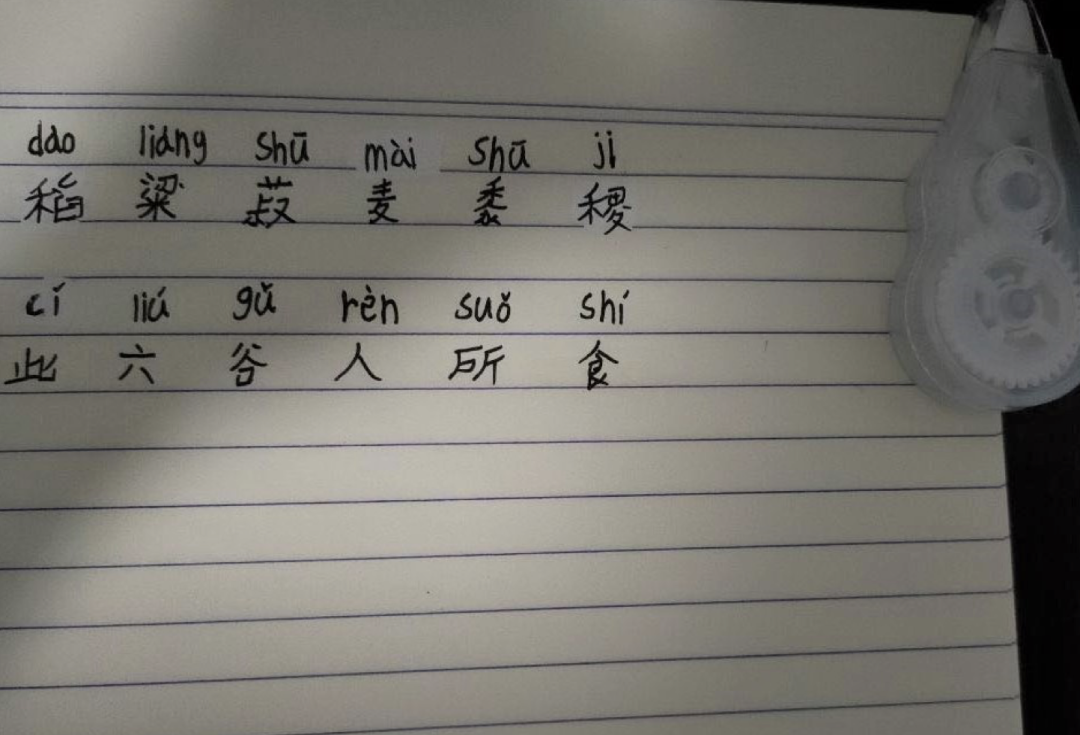 dào liáng shū mài shǔ jì
稻 粱 菽 麦 黍 稷
cǐ liú gǔ rèn suǒ shí
此 六 谷 人 所 食